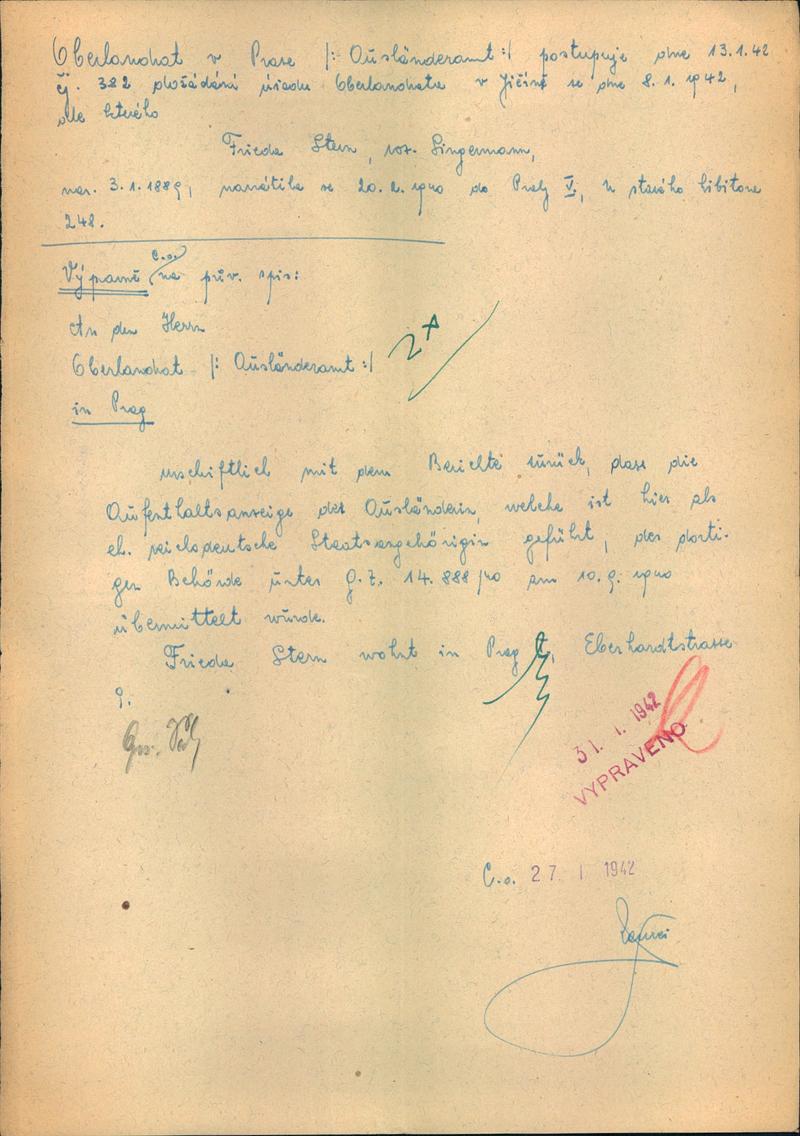 Oberlandrat v Praze /: Ausländeramt :/ postupuje dne 13.1.42
čj. 382 dožádání úřadu Oberlandrata v Jičíně ze dne 8. 1. 1942,
dle kterého
Frieda Stern, roz. Singermann,
nar. 3. 1. 1889, navrátila se 20. 2. 1940 do Prahy V., U starého hřbitova
248.
Výpravně C.o. na pův. spis:
An den Herrn
Oberlandrat /: Ausländeramt :/
in Prag
2x
urschriftlich mit dem Berichte zurück, dass die
Aufenthaltsanzeige der Ausländerin, welche ist hier als
eh. reichsdeutsche Staatsangehörigin geführt, der dorti-
gen Behörde unter G. Z. 14.888/40 am 10. 9. 1940
übermittelt wurde.
Frieda Stern wohnt in Prag, Eberhardtstrasse
9.
31. 1. 1942
VYPRAVENO
C.o. 27. I. 1942